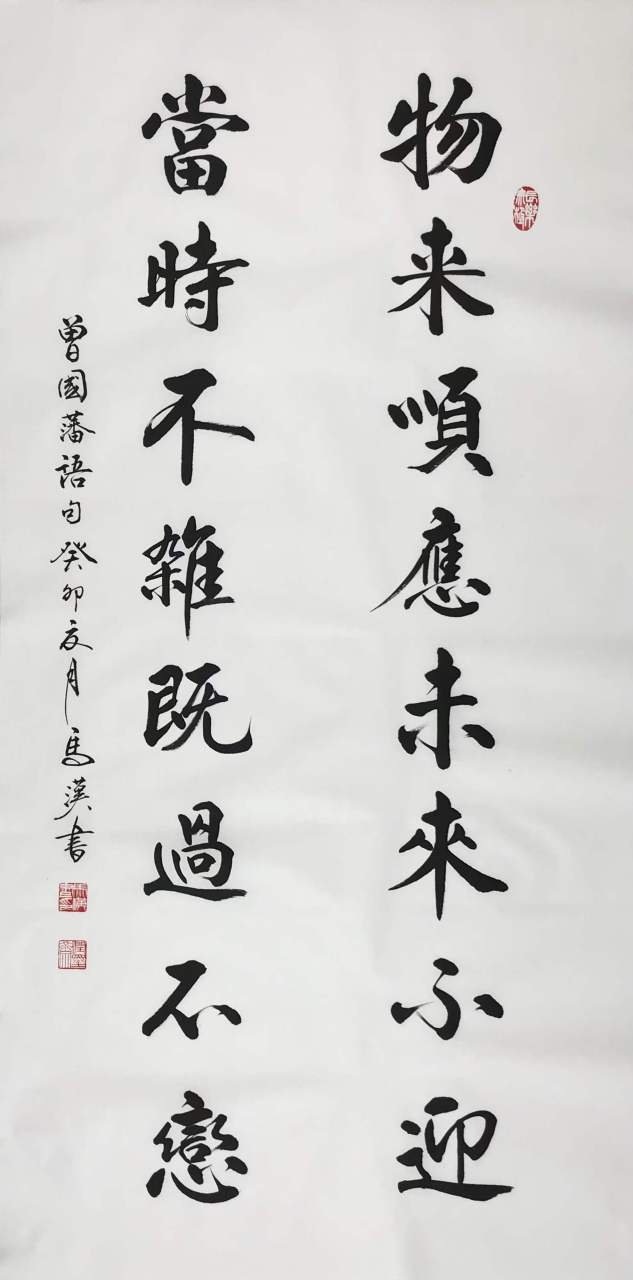 物来順應未來不迎
當時不雜既過不戀
曾國藩語句癸卯夏月馬漢書